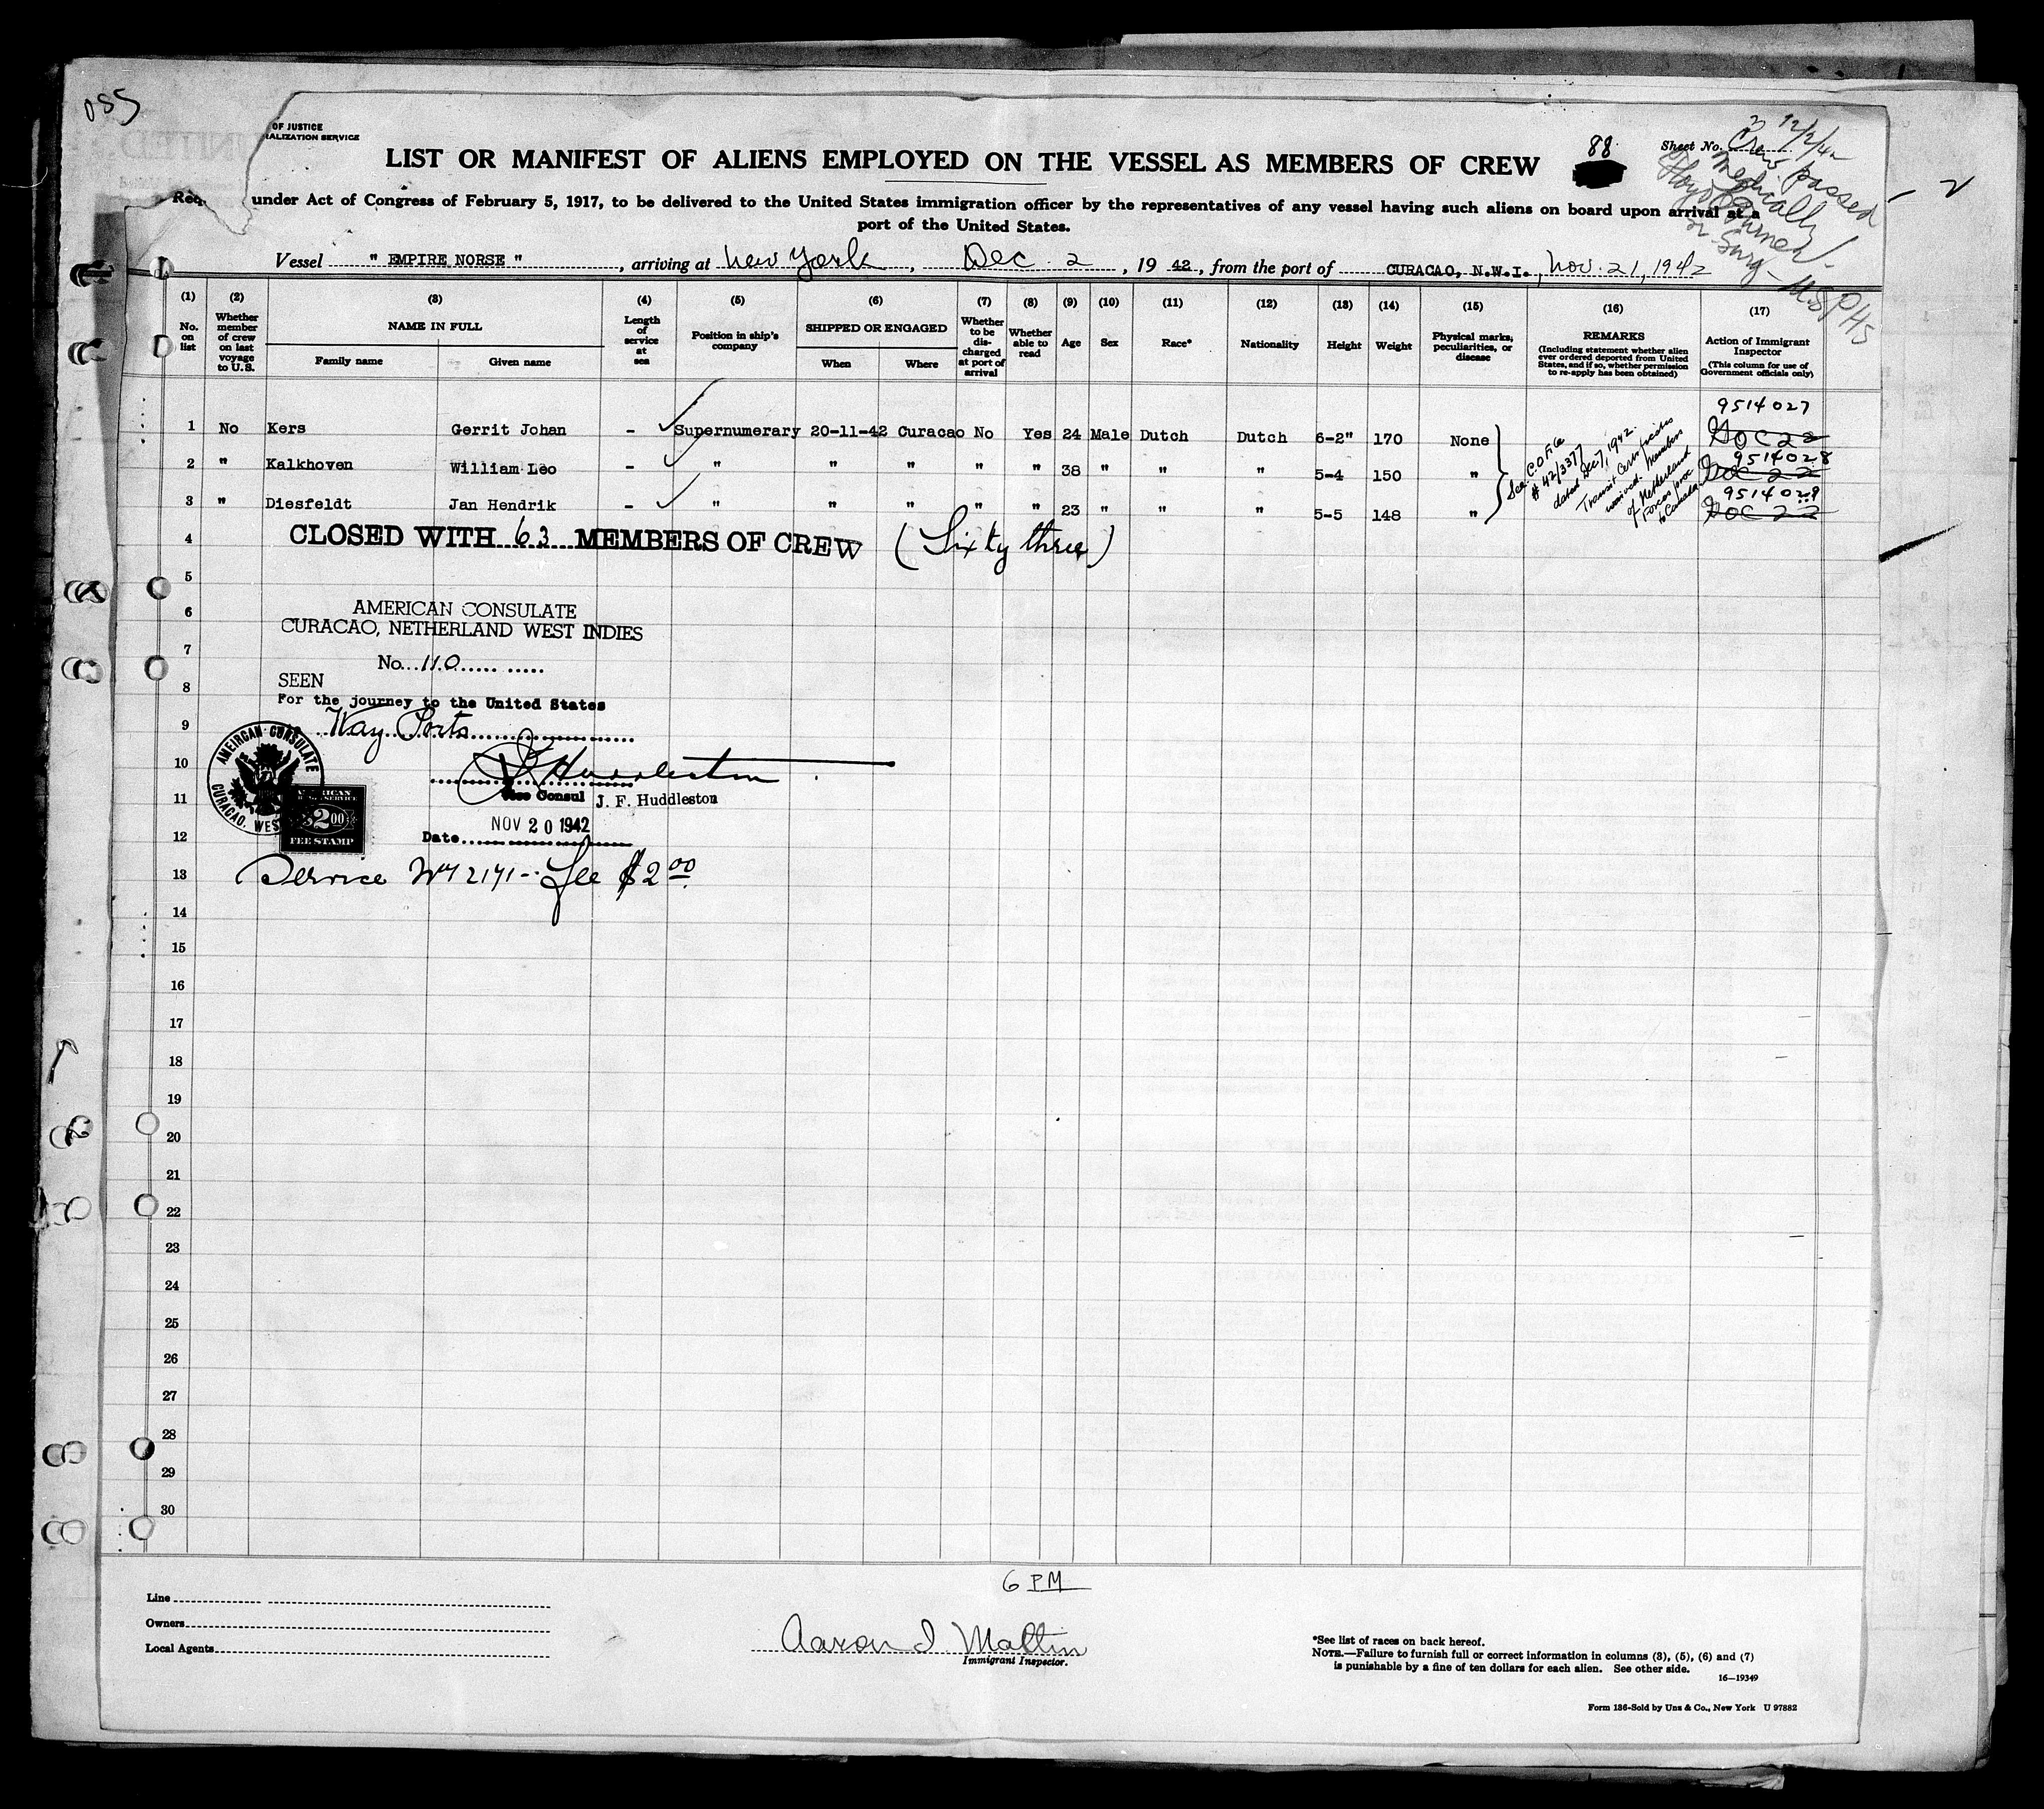 055
OF JUSTICE
ALIZATION SERVICE
LIST OR MANIFEST OF ALIENS EMPLOYED ON THE VESSEL AS MEMBERS OF CREW
88
Sheet No. 3
12/2/42
Crew passed
medically
Surg.
USPHS
2
Req under Act of Congress of February 5, 1917, to be delivered to the United States immigration officer by the representatives of any vessel having such aliens on board upon arrival at a
port of the United States.
Vessel " EMPIRE NORSE " , arriving at New York , Dec. 2 , 19 42 , from the port of CURACAO, N.W.I. , Nov. 21, 1942
(1) No. on list
(2) Whether member of crew on last voyage to U.S.
(3) NAME IN FULL Family name Given name
(4) Length of service at sea
(5) Position in ship's company
(6) SHIPPED OR ENGAGED When Where
(7) Whether to be dis-charged at port of arrival
(8) Whether able to read
(9) Age
(10) Sex
(11) Race*
(12) Nationality
(13) Height
(14) Weight
(15) Physical marks, peculiarities, or disease
(16) REMARKS (Including statement whether alien ever ordered deported from United States, and if so, whether permission to re-apply has been obtained)
(17) Action of Immigrant Inspector (This column for use of Government officials only)
9514027
1 No Kers Gerrit Johan – Supernumerary 20-11-42 Curacao No Yes 24 Male Dutch Dutch 6-2" 170 None
9514028
2 " Kalkhoven William Leo – " " " " " 38 " " " 5-4 150 "
9514029
3 " Diesfeldt Jan Hendrik – " " " " " 23 " " " 5-5 148 "
See C.O. File
# 42/3377
dated Dec 7, 1942.
Transit Certificates
waived. Members
of Netherland
Forces proc.
to Canada
4 CLOSED WITH 63 MEMBERS OF CREW (Sixty three)
5
6 AMERICAN CONSULATE
CURACAO, NETHERLAND WEST INDIES
7 No. 110
8 SEEN
For the journey to the United States
9 Way Ports
10
11 Vice Consul J. F. Huddleston
12 Date NOV 20 1942
AMERICAN CONSULATE
CURACAO, WES
AMERICAN
SERVICE
$2.00
FEE STAMP
13 Service No 2171 -- Fee $2.00
14
15
16
17
18
19
20
21
22
23
24
25
26
27
28
29
30
6 PM
Line
Owners
Local Agents
Aaron I. Maltin
Immigrant Inspector.
*See list of races on back hereof.
NOTE.—Failure to furnish full or correct information in columns (3), (5), (6) and (7)
is punishable by a fine of ten dollars for each alien. See other side.
16—19349
Form 136-Sold by Unz & Co., New York U 97882